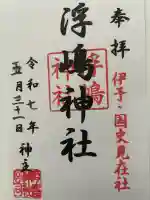 奉拝
伊予之国史見在社
浮嶋神社
浮嶋
神社
令和七年
五月三十一日
神主